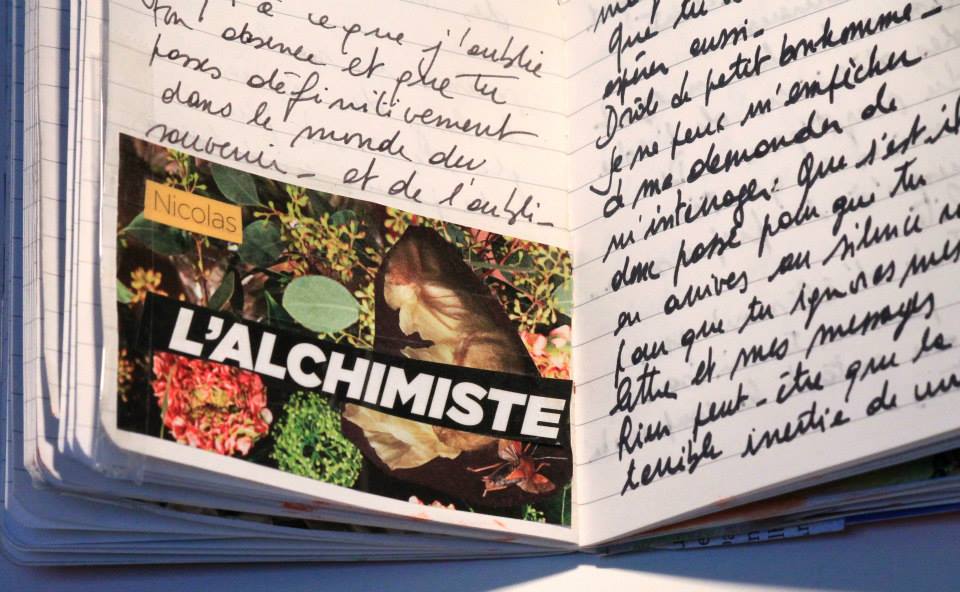 à ce que j'oublie
ton absence et que tu
passes définitivement
dans le monde du
souvenir - et de l'oubli -
Nicolas
L'ALCHIMISTE
que tu
espérer aussi -
Drôle de petit bonhomme -
Je ne peux m'empêcher
à me demander de
m'interroger: Que s'est-il
donc passé pour que tu
en arrives au silence
pour que tu ignores mes
lettre et mes messages
Rien peut-être que la
terrible inertie de